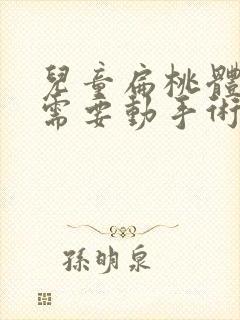 兒童扁桃體
需要動手術
孫明泉